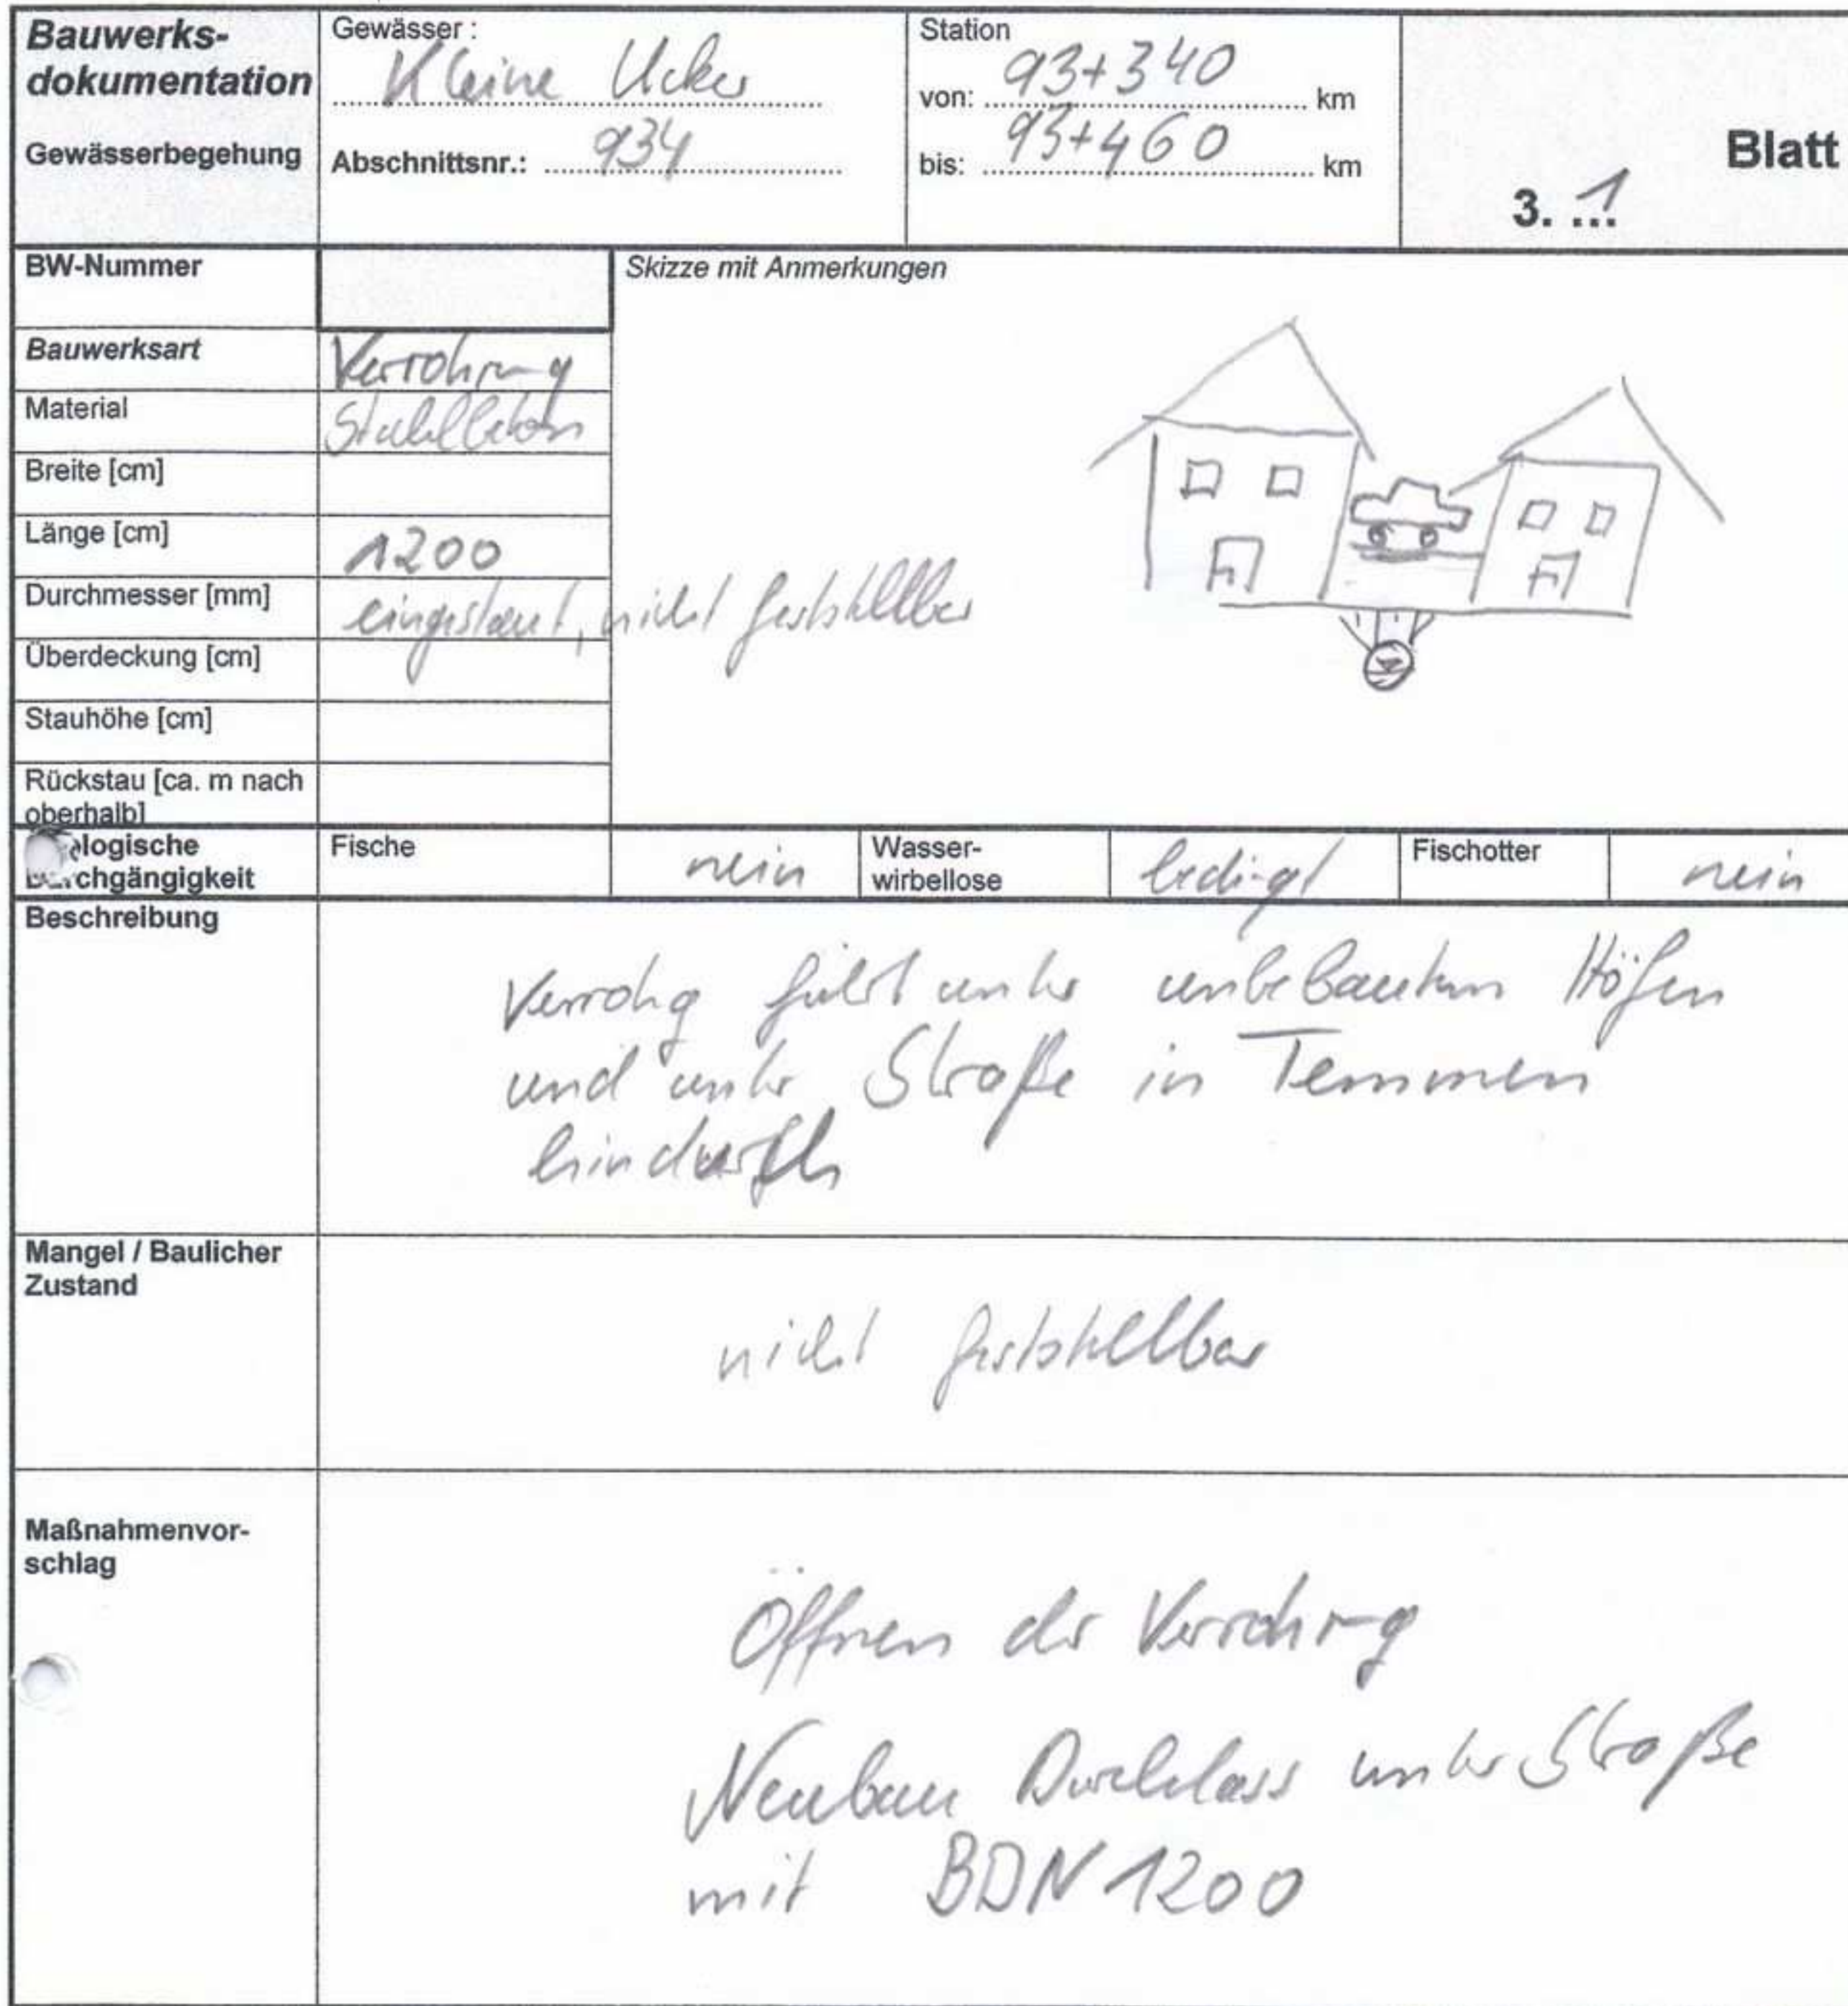 Bauwerks-
dokumentation
Gewässerbegehung
Gewässer :
Kleine Ucker
Abschnittsnr.: 934
Station
von: 93+340 km
bis: 93+460 km
Blatt
3. 1
BW-Nummer
Skizze mit Anmerkungen
Bauwerksart Verrohrung
Material Stahlbeton
Breite [cm]
Länge [cm] 1200
Durchmesser [mm] eingestaut, nicht feststellbar
Überdeckung [cm]
Stauhöhe [cm]
Rückstau [ca. m nach
oberhalb]
Durchgängigkeit
Fische nein
Wasser-
wirbellose bedingt
Fischotter nein
Beschreibung
Verrohg führt unter unbebauten Höfen
und unter Straße in Temmen
hindurch
Mangel / Baulicher
Zustand
nicht feststellbar
Maßnahmenvor-
schlag
Öffnen der Verrohrung
Neubau Durchlass unter Straße
mit BDN 1200